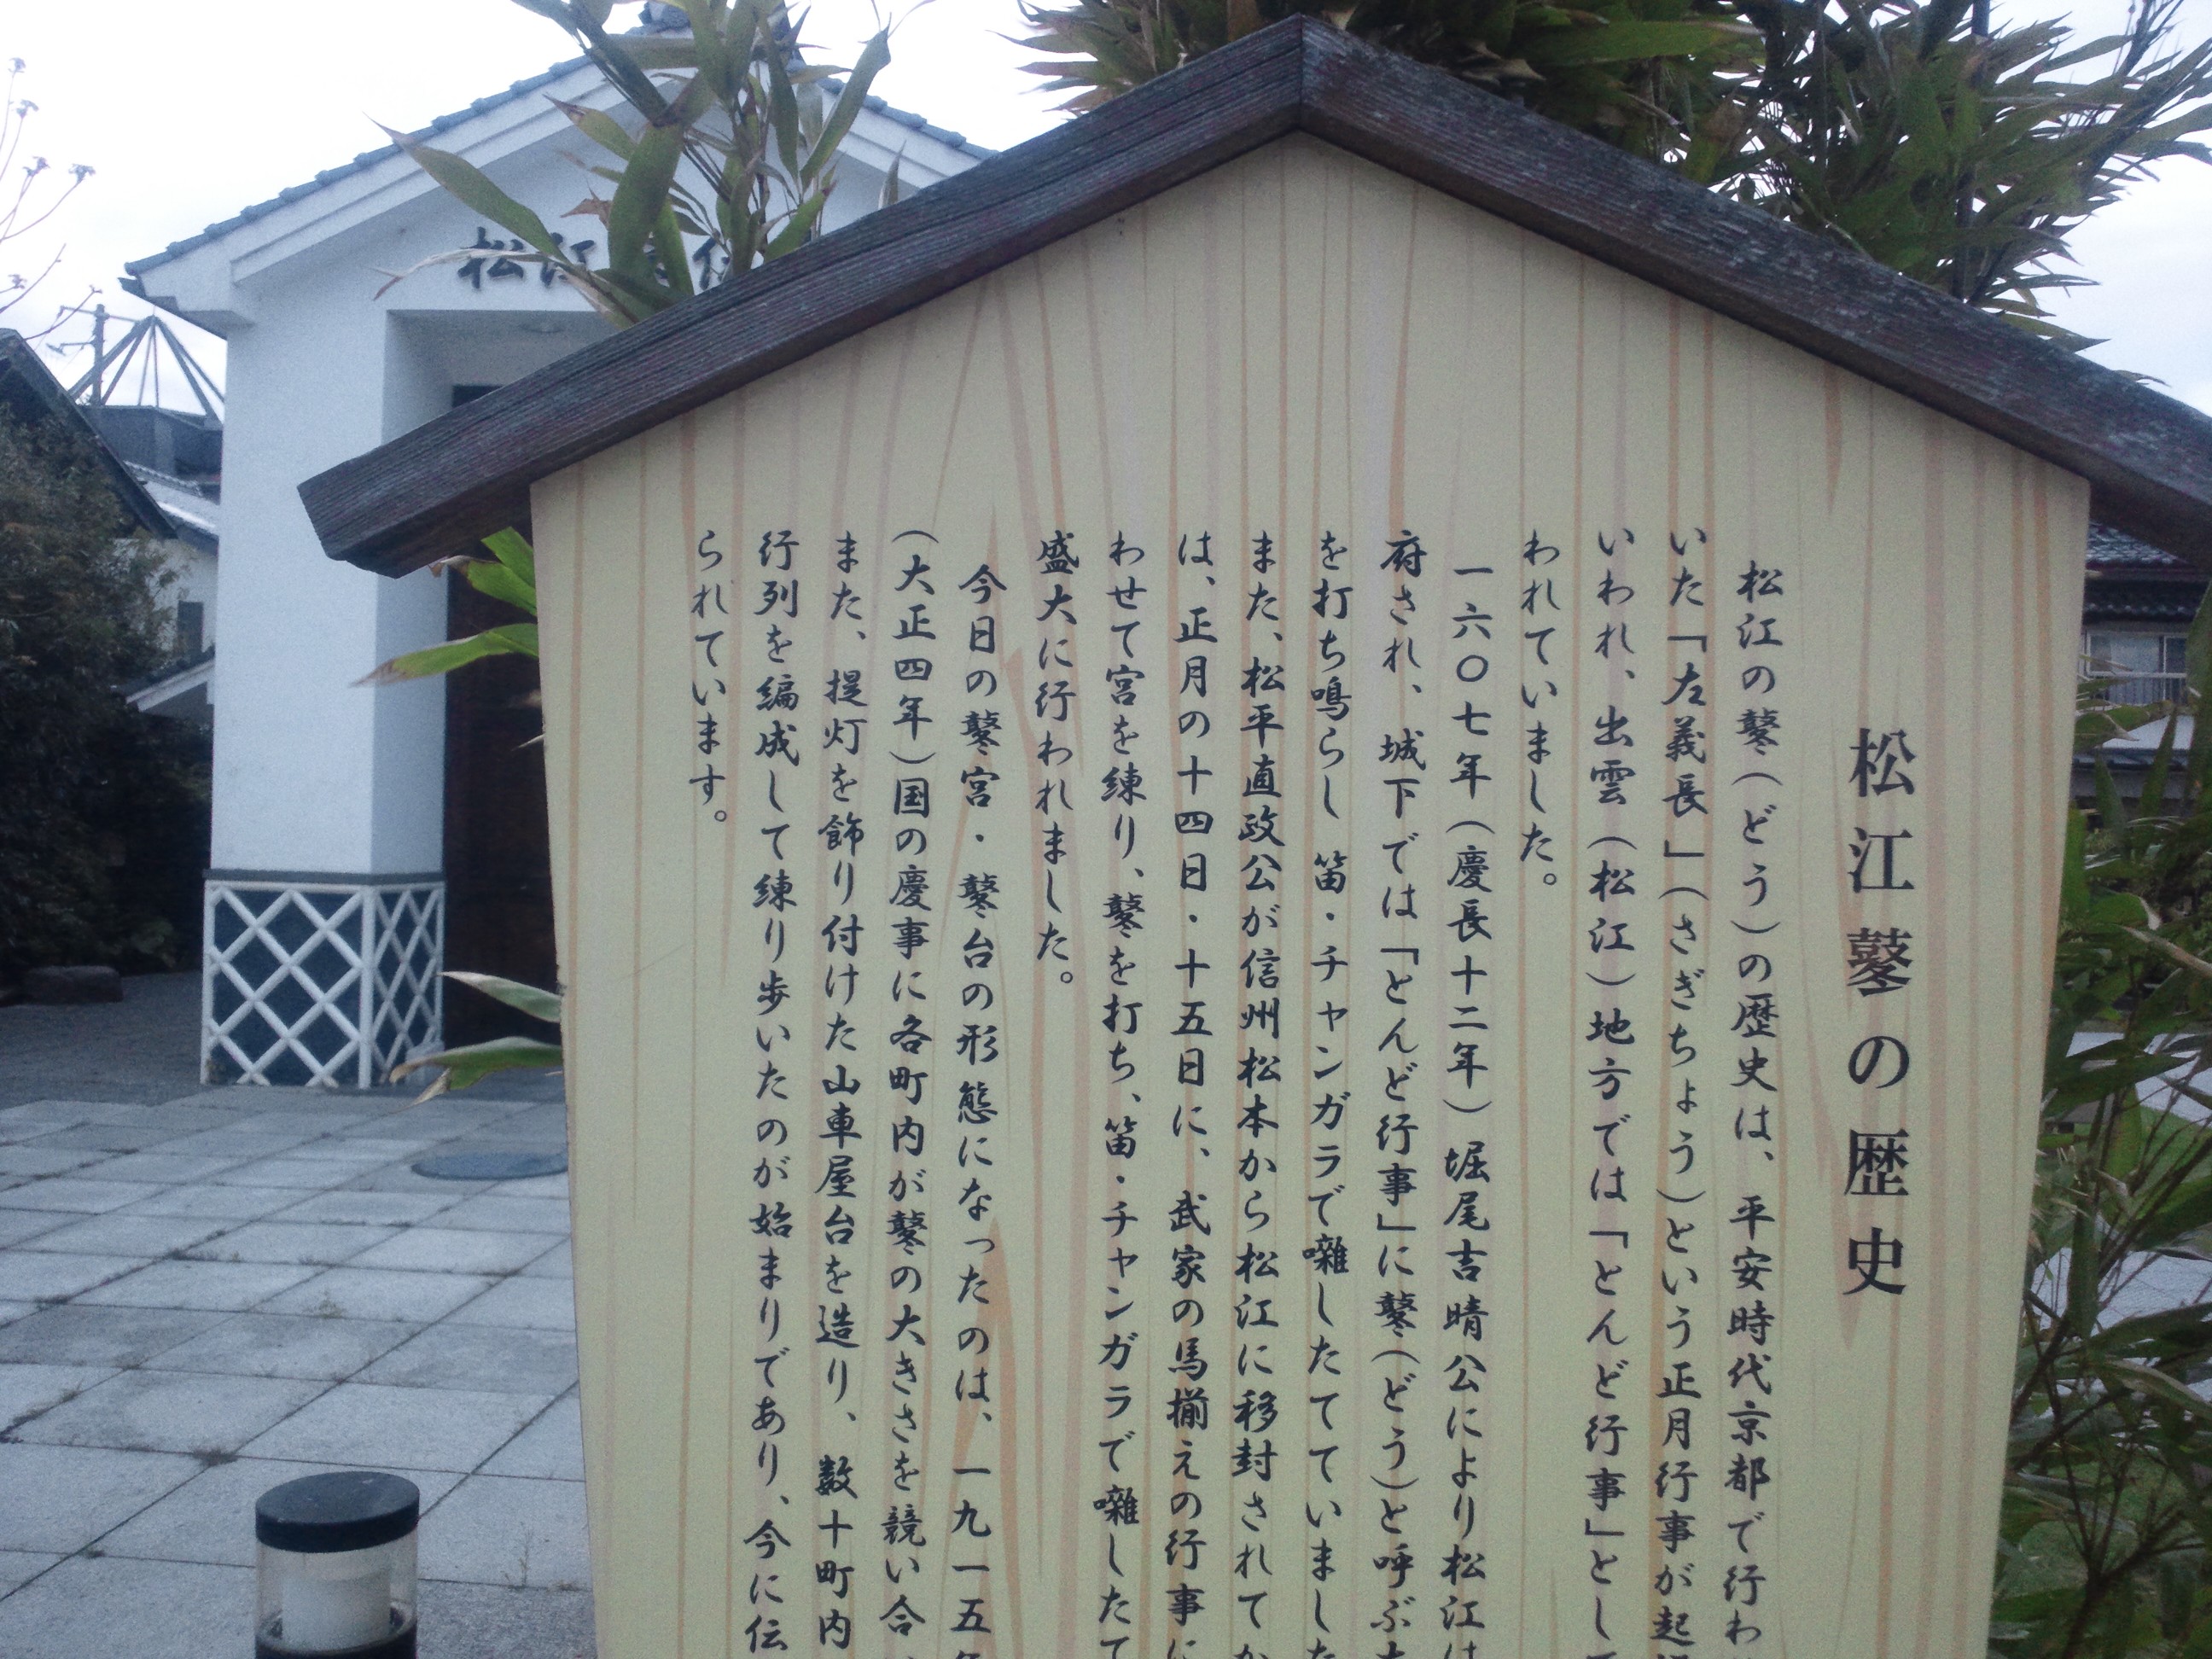 松江鼕の歴史
松江の鼕(どう)の歴史は、平安時代京都で行わ
いた「左義長」(さぎちょう)という正月行事が起
いわれ、出雲(松江)地方では「とんど行事」とし
われていました。
一六〇七年(慶長十二年)堀尾吉晴公により松江
府され、城下では「とんど行事」に鼕(どう)と呼ぶ
を打ち鳴らし 笛・チャンガラで囃したてていました
また、松平直政公が信州松本から松江に移封されてか
は、正月の十四日・十五日に、武家の馬揃えの行事に
わせて宮を練り、鼕を打ち、笛・チャンガラで囃したて
盛大に行われました。
今日の鼕宮・鼕台の形態になったのは、一九一五年
(大正四年)国の慶事に各町内が鼕の大きさを競い合
また、提灯を飾り付けた山車屋台を造り、数十町内
行列を編成して練り歩いたのが始まりであり、今に伝
られています。
松江